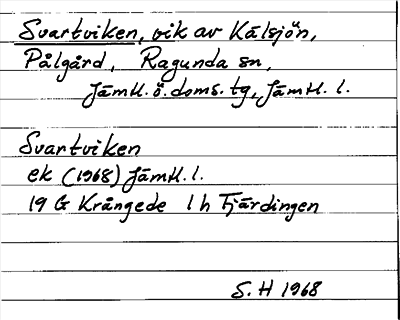 Svartviken, vik av Kälsjön,
Pålgård, Ragunda sn,
Jämtl. ö. doms. tg, Jämtl. l.
Svartviken
ek (1968) Jämtl. l.
19 G Krångede 1 h Fjärdingen
S. H 1968